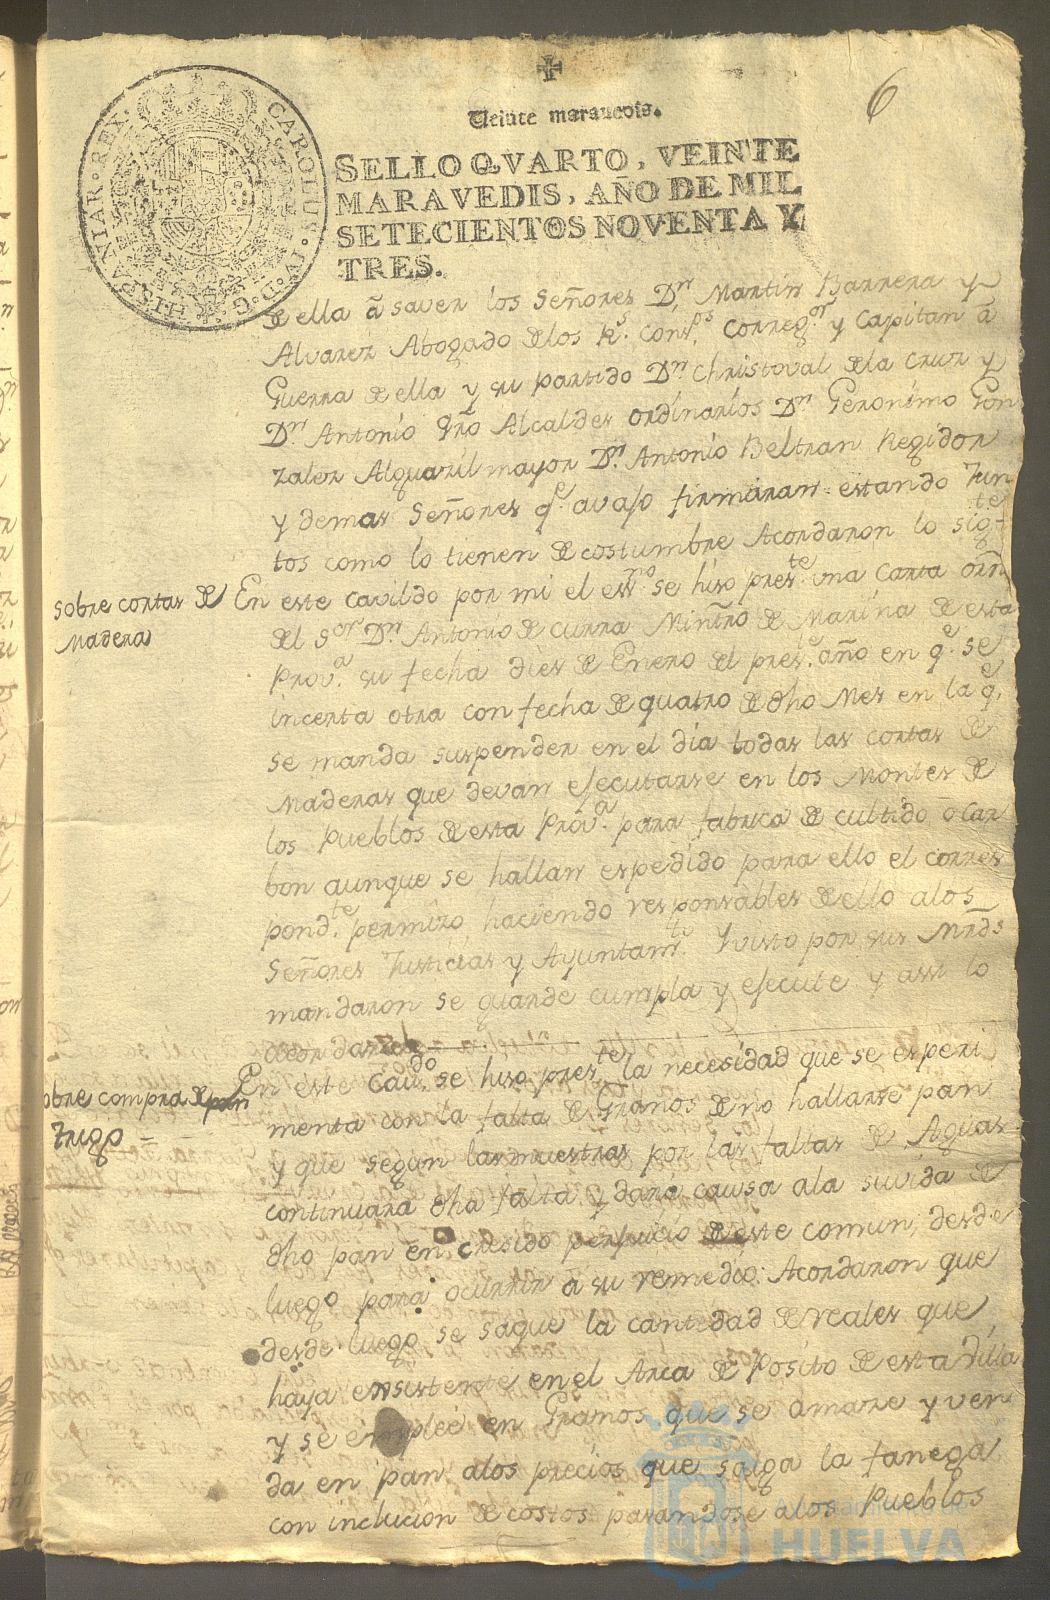 6
Veinte maravedis.
CAROLUS. IV. D. G. HISPANIAR. REX.
SELLO QVARTO, VEINTE
MARAVEDIS, AÑO DE MIL
SETECIENTOS NOVENTA Y
TRES.
de ella â saver los Señores Dn Martin Barrera y
Alvarez Abogado de los Rs. Consos. Corregor y Capitan â
Guerra de ella y su partido Dn Christoval de la Cruz y
Dn Antonio Alcaldes ordinarios Dn Geronimo Gon
zalez Alguazil mayor Dn. Antonio Beltran Regidor
y demas Señores qe. avajo firmaran estando Jun
tos como lo tienen de costumbre Acordaron lo sigte
sobre cortas de
Madera
En este cavildo por mi el essno se hiso preste. una Carta orn
del Sor Dn Antonio de Curra Mintro de Marina de esta
Prova. su fecha dies de Enero del prese. año en qe. se
incerta otra con fecha de quatro de dho Mes en la qe.
se manda suspender en el dia todas las cortas de
Maderas que devan esecutarse en los Montes de
los Pueblos de esta Prova. para fabrica de cultido o Car
bon aunque se hallan espedido para ello el corres
pondte. permiso haciendo responsables de ello a los
Señores Justicias y Ayuntamto. Y visto por sus Mrds
mandaron se guarde cumpla y esecute y assi lo
acordaron
obre compra de pan
trigo
En este Cavdo. se hiso preste. la necesidad que se esperi
menta con la falta de Granos de no hallarse pan
y que segun las muestras por las faltas de Aguas
continuara dha falta y dara causa a la suvida de
dho pan en cresido perjuicio de este comun, desde
luego para ocurrir â su remedio: Acordaron que
desde luego se saque la cantidad de reales que
haya ensistente en el Arca de Posito de esta Villa
y se emplee en Granos que se amase y ven
da en pan a los precios que salga la fanega
con inclucion de costos pasandose a los Pueblos
Ayuntamiento de
HUELVA